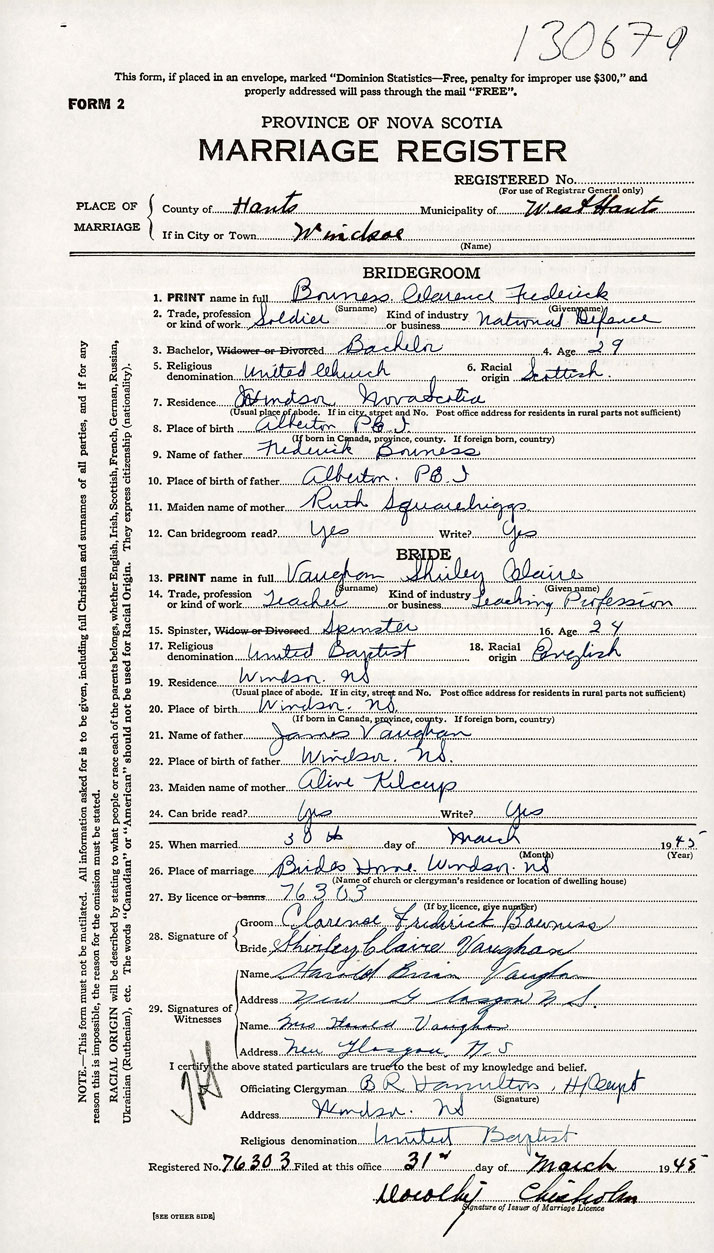 130679
This form, if placed in an envelope, marked "Dominion Statistics—Free, penalty for improper use $300," and
properly addressed will pass through the mail "FREE".
FORM 2
PROVINCE OF NOVA SCOTIA
MARRIAGE REGISTER
REGISTERED No.
(For use of Registrar General only)
PLACE OF MARRIAGE
County of Hants Municipality of West Hants
If in City or Town Windsor
(Name)
BRIDEGROOM
1. PRINT name in full Bowness Clarence Frederick
(Surname) (Given name)
2. Trade, profession or kind of work Soldier Kind of industry or business National Defence
3. Bachelor, Widower or Divorced Bachelor 4. Age 29
5. Religious denomination United Church 6. Racial origin Scottish.
7. Residence Windsor Nova Scotia
(Usual place of abode. If in city, street and No. Post office address for residents in rural parts not sufficient)
8. Place of birth Alberton P.E.I.
(If born in Canada, province, county. If foreign born, country)
9. Name of father Frederick Bowness
10. Place of birth of father Alberton. P.E.I
11. Maiden name of mother Ruth Squarebriggs
12. Can bridegroom read? Yes Write? Yes
BRIDE
13. PRINT name in full Vaughan Shirley Claire
(Surname) (Given name)
14. Trade, profession or kind of work Teacher Kind of industry or business Teaching Profession
15. Spinster, Widow or Divorced Spinster 16. Age 24
17. Religious denomination United Baptist 18. Racial origin English
19. Residence Windsor. NS
(Usual place of abode. If in city, street and No. Post office address for residents in rural parts not sufficient)
20. Place of birth Windsor. NS.
(If born in Canada, province, county. If foreign born, country)
21. Name of father James Vaughan
22. Place of birth of father Windsor. NS.
23. Maiden name of mother Alive Kilcup
24. Can bride read? Yes Write? Yes
25. When married 30th day of March 1945
(Month) (Year)
26. Place of marriage Brides Home Windsor. NS
(Name of church or clergyman's residence or location of dwelling house)
27. By licence or banns 76303
(If by licence, give number)
28. Signature of
Groom Clarence Fredrick Bowness
Bride Shirley Claire Vaughan
29. Signatures of Witnesses
Name Harold Brian Vaughan
Address New Glasgow N.S.
Name Mrs Harold Vaughan
Address New Glasgow. N.S
I certify the above stated particulars are true to the best of my knowledge and belief.
Officiating Clergyman B R Hamilton, H/Capt
(Signature)
Address Windsor. NS
Religious denomination United Baptist
Registered No. 76303 Filed at this office 31st day of March 1945
Dorothy Chisholm
Signature of Issuer of Marriage Licence
[SEE OTHER SIDE]
NOTE.—This form must not be mutilated. All information asked for is to be given, including full Christian and surnames of all parties, and if for any
reason this is impossible, the reason for the omission must be stated.
RACIAL ORIGIN will be described by stating to what people or race each of the parents belongs, whether English, Irish, Scottish, French, German, Russian,
Ukrainian (Ruthenian), etc. The words "Canadian" or "American" should not be used for Racial Origin. They express citizenship (nationality).